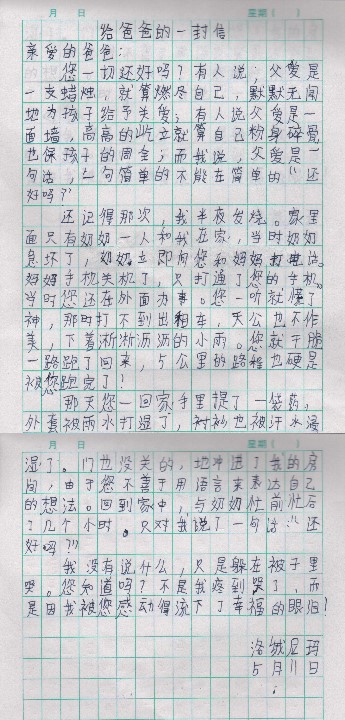 月 日 星期( )
给爸爸的一封信
亲爱的爸爸:
您一切还好吗?有人说;父爱是
一支蜡烛,就算燃尽自己,默默无闻
地为孩子给予关爱;有人说父爱是一
面墙,高高的屹立就算自己粉身碎骨
也保孩子的周全;而我说,父爱是一
句话,一句简单的不能在简单的“还
好吗?”
还记得那次,我半夜发烧。家里
面只有奶奶一人和我在家,当时奶奶
急坏了,奶奶立即向您和妈妈打电话。
妈妈手机关机了,只打通了您的手机。
当时您还在外面办事。您一听就慌了
神,那时打不到出租车,天公也不作
美,下着淅淅沥沥的小雨。您就干脆
一路跑了回来,5公里的路程也硬是
被您跑完了!
那天您一回家,手里提了一袋药,
外套被雨水打湿了,衬衫也被汗水浸
月 日 星期( )
湿了。门也没关的,地冲进了我的房
间,由于您不善于用语言来表达自己
的想法。回到家中,与奶奶忙前忙后
了几个小时。只对我说了一句话:“还
好吗?”
我没有说什么,只是躲在被子里
哭。您知道吗?不是我疼到哭了,而
是因我被您感动得流下了幸福的眼泪?
洛绒尼玛
5月11日